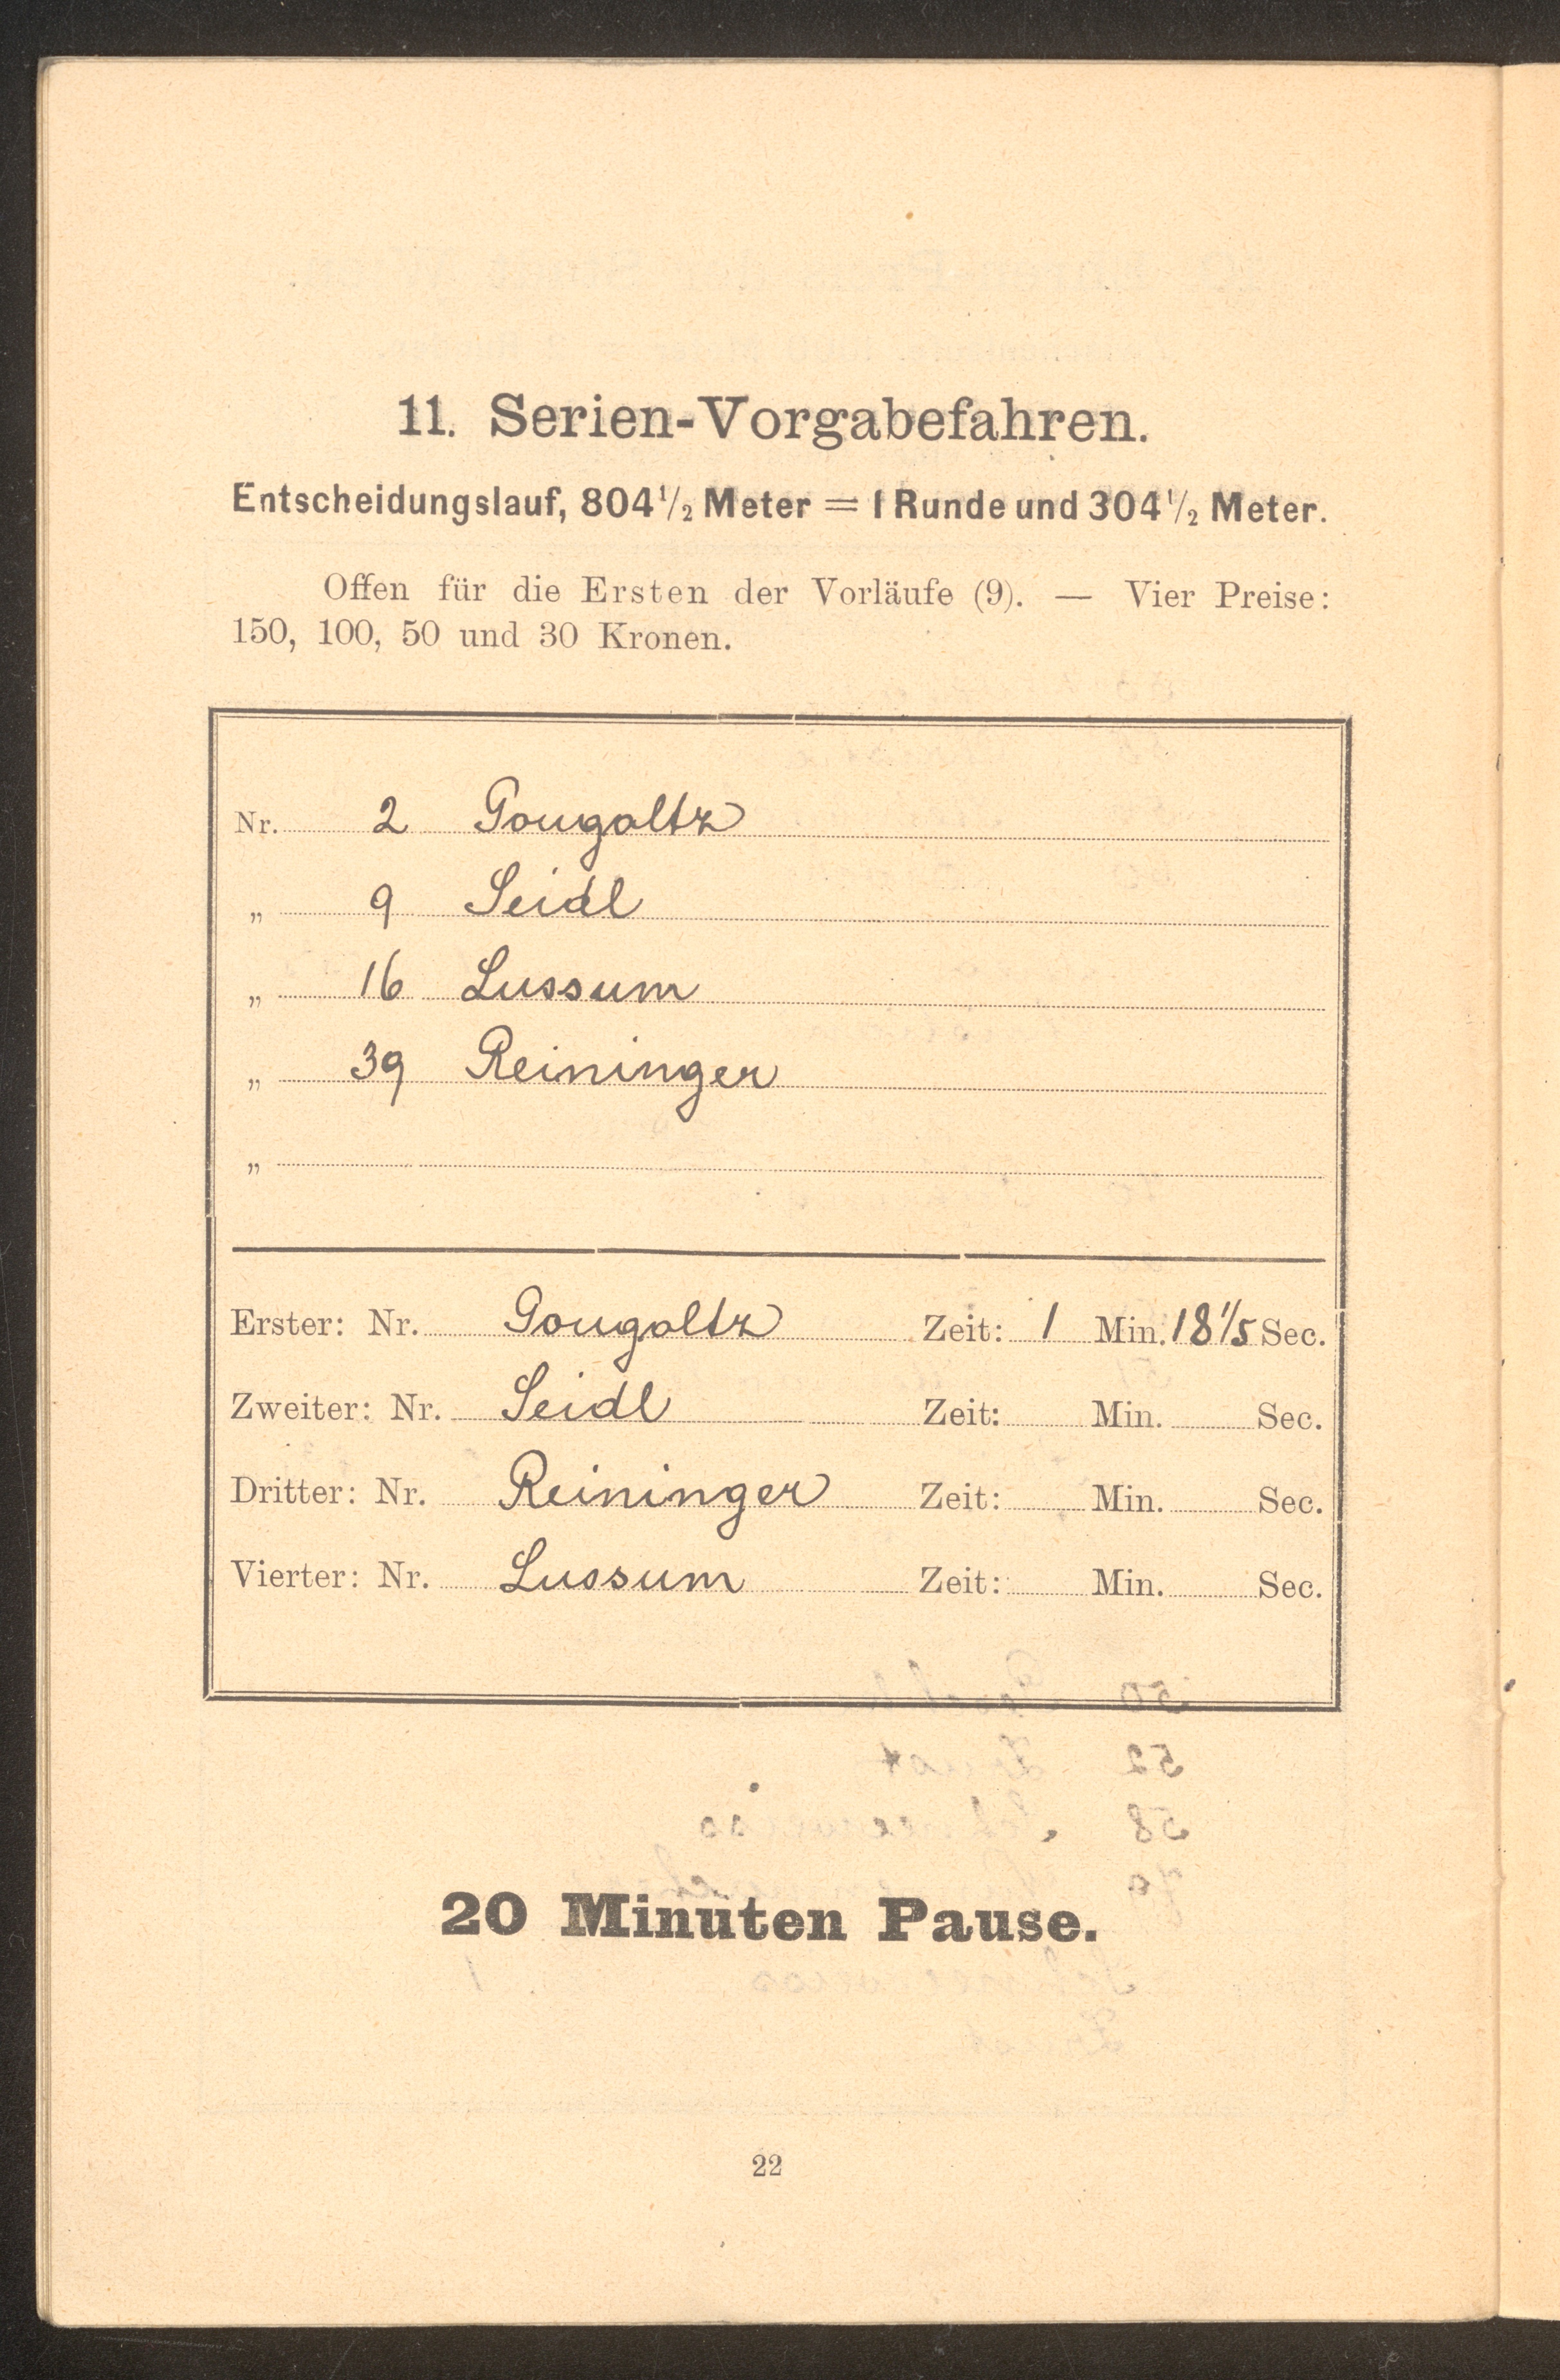 11. Serien-Vorgabefahren.
Entscheidungslauf, 804 1/2 Meter = 1 Runde und 304 1/2 Meter.
Offen für die Ersten der Vorläufe (9). — Vier Preise:
150, 100, 50 und 30 Kronen.
Nr. 2 Gougoltz
„ 9 Seidl
„ 16 Lussum
„ 39 Reininger
„
Erster: Nr. Gougoltz Zeit: 1 Min. 18 1/5 Sec.
Zweiter: Nr. Seidl Zeit: Min. Sec.
Dritter: Nr. Reininger Zeit: Min. Sec.
Vierter: Nr. Lussum Zeit: Min. Sec.
20 Minuten Pause.
22